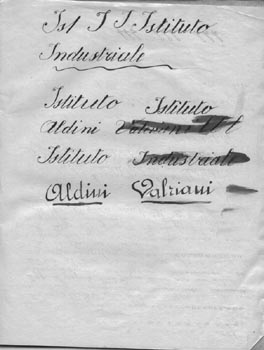 Ist I I Istituto
Industriale
Istituto Istituto
Aldini Valriani
Istituto Industriale
Aldini Valriani